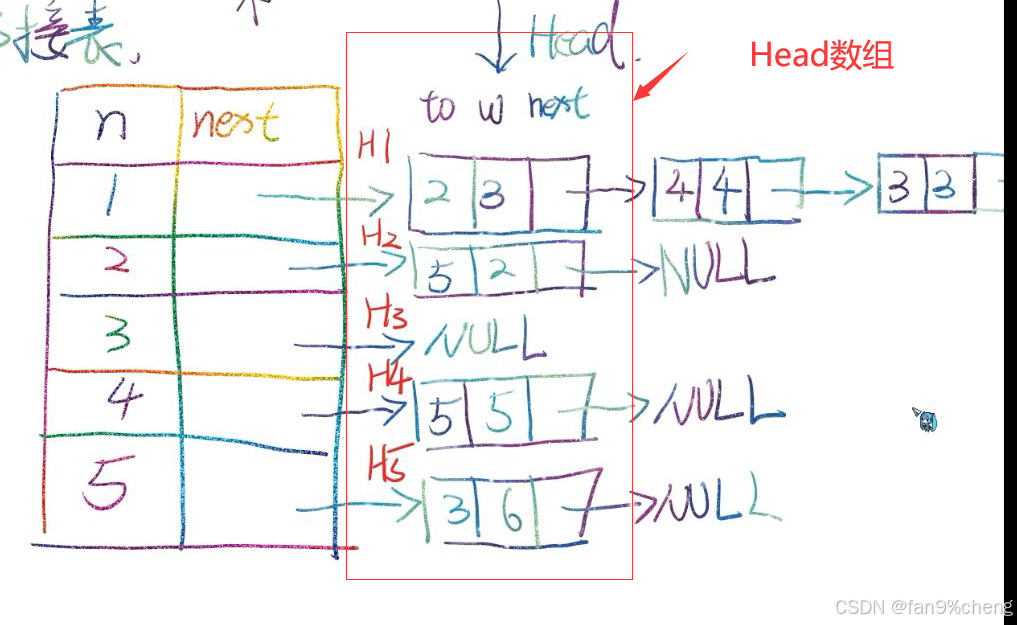 接表,
Head.
Head数组
to w next
n next
H1
1 2 3 4 4 3 3
H2
2 5 2 NULL
H3
3 NULL
H4
4 5 5 NULL
H5
5 3 6 NULL
CSDN @fan9%cheng